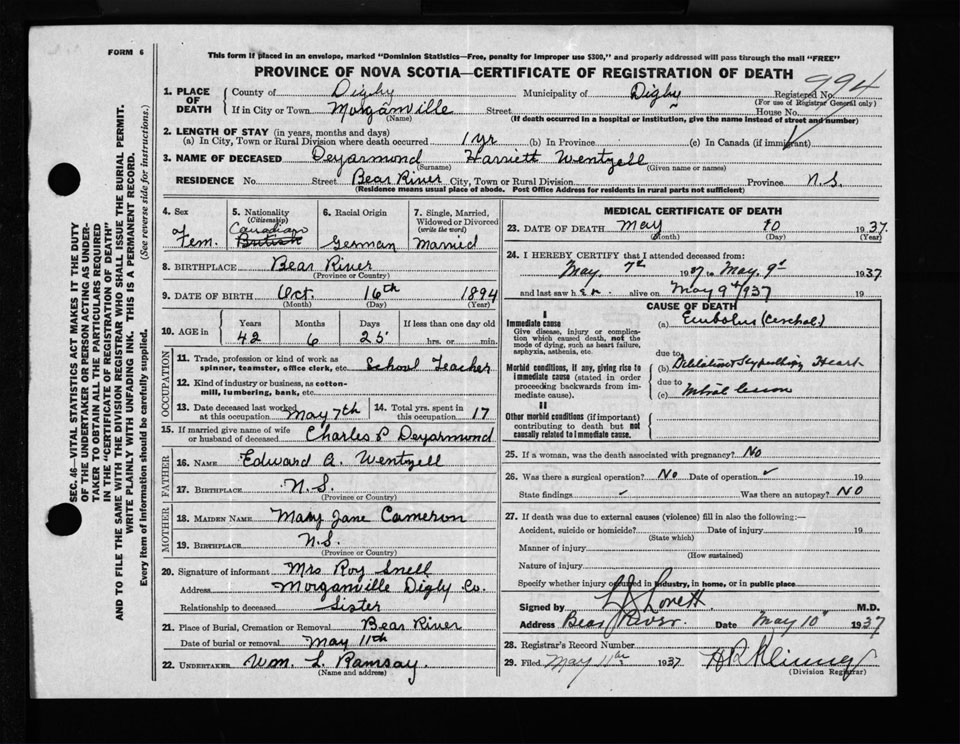 FORM 6
This form if placed in an envelope, marked "Dominion Statistics—Free, penalty for improper use $300," and properly addressed will pass through the mail "FREE"
PROVINCE OF NOVA SCOTIA—CERTIFICATE OF REGISTRATION OF DEATH
994
1. PLACE OF DEATH { County of Digby Municipality of Digby Registered No.
(For use of Registrar General only)
If in City or Town Morganville Street House No.
(Name) (If death occurred in a hospital or institution, give the name instead of street and number)
2. LENGTH OF STAY (in years, months and days)
(a) In City, Town or Rural Division where death occurred 1 yr (b) In Province (c) In Canada (if immigrant)
3. NAME OF DECEASED Deyarmond Harriett Wentzell
(Surname) (Given name or names)
RESIDENCE No. Street Bear River City, Town or Rural Division Province N.S.
(Residence means usual place of abode. Post Office Address for residents in rural parts not sufficient)
4. Sex Fem.
5. Nationality (Citizenship) Canadian British
6. Racial Origin German
7. Single, Married, Widowed or Divorced (write the word) Married
8. BIRTHPLACE Bear River
(Province or Country)
9. DATE OF BIRTH Oct. 16th 1894
(Month) (Day) (Year)
10. AGE in Years Months Days If less than one day old
42 6 25 hrs. or min.
OCCUPATION
11. Trade, profession or kind of work as spinner, teamster, office clerk, etc. School Teacher
12. Kind of industry or business, as cotton-mill, lumbering, bank, etc.
13. Date deceased last worked at this occupation May 7th 14. Total yrs. spent in this occupation 17
15. If married give name of wife or husband of deceased Charles P Deyarmond
FATHER
16. NAME Edward A. Wentzell
17. BIRTHPLACE N.S.
(Province or Country)
MOTHER
18. MAIDEN NAME Mary Jane Cameron
19. BIRTHPLACE N.S.
(Province or Country)
20. Signature of informant Mrs Roy Snell
Address Morganville Digby Co.
Relationship to deceased Sister
21. Place of Burial, Cremation or Removal Bear River
Date of burial or removal May 11th
22. UNDERTAKER Wm. L. Ramsay.
(Name and address)
MEDICAL CERTIFICATE OF DEATH
23. DATE OF DEATH May 10 1937.
(Month) (Day) (Year)
24. I HEREBY CERTIFY that I attended deceased from:
May 7th 1937 to May 9th 1937
and last saw her alive on May 9th 1937 19
CAUSE OF DEATH
I
Immediate cause
Give disease, injury or complication which caused death, not the mode of dying, such as heart failure, asphyxia, asthenia, etc.
(a) Embolus
due to
Morbid conditions, if any, giving rise to immediate cause (stated in order proceeding backwards from immediate cause).
(b) Heart
due to
(c) Mitral lesion
II
Other morbid conditions (if important) contributing to death but not causally related to immediate cause.
25. If a woman, was the death associated with pregnancy? No
26. Was there a surgical operation? No Date of operation 19
State findings Was there an autopsy? No
27. If death was due to external causes (violence) fill in also the following:—
Accident, suicide or homicide? Date of injury 19
(State which)
Manner of injury
(How sustained)
Nature of injury
Specify whether injury occurred in industry, in home, or in public place
Signed by L J Lovett M.D.
Address Bear River. Date May 10 1937
28. Registrar's Record Number
29. Filed May 11th 1937
(Division Registrar)
SEC. 46—VITAL STATISTICS ACT MAKES IT THE DUTY
OF THE UNDERTAKER OR PERSON ACTING AS UNDER-
TAKER TO OBTAIN ALL THE PARTICULARS REQUIRED
IN THE "CERTIFICATE OF REGISTRATION OF DEATH"
AND TO FILE THE SAME WITH THE DIVISION REGISTRAR WHO SHALL ISSUE THE BURIAL PERMIT.
WRITE PLAINLY WITH UNFADING INK. THIS IS A PERMANENT RECORD.
Every item of information should be carefully supplied. (See reverse side for instructions.)